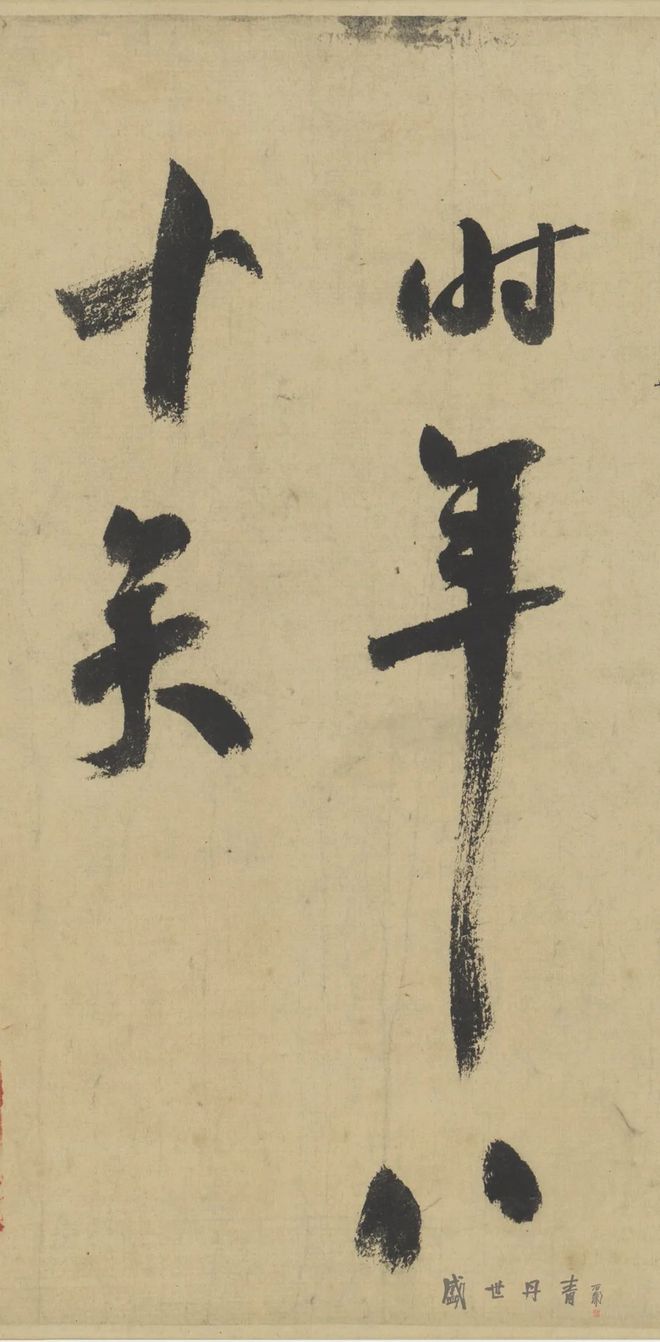 时年八
十矣
盛世丹青